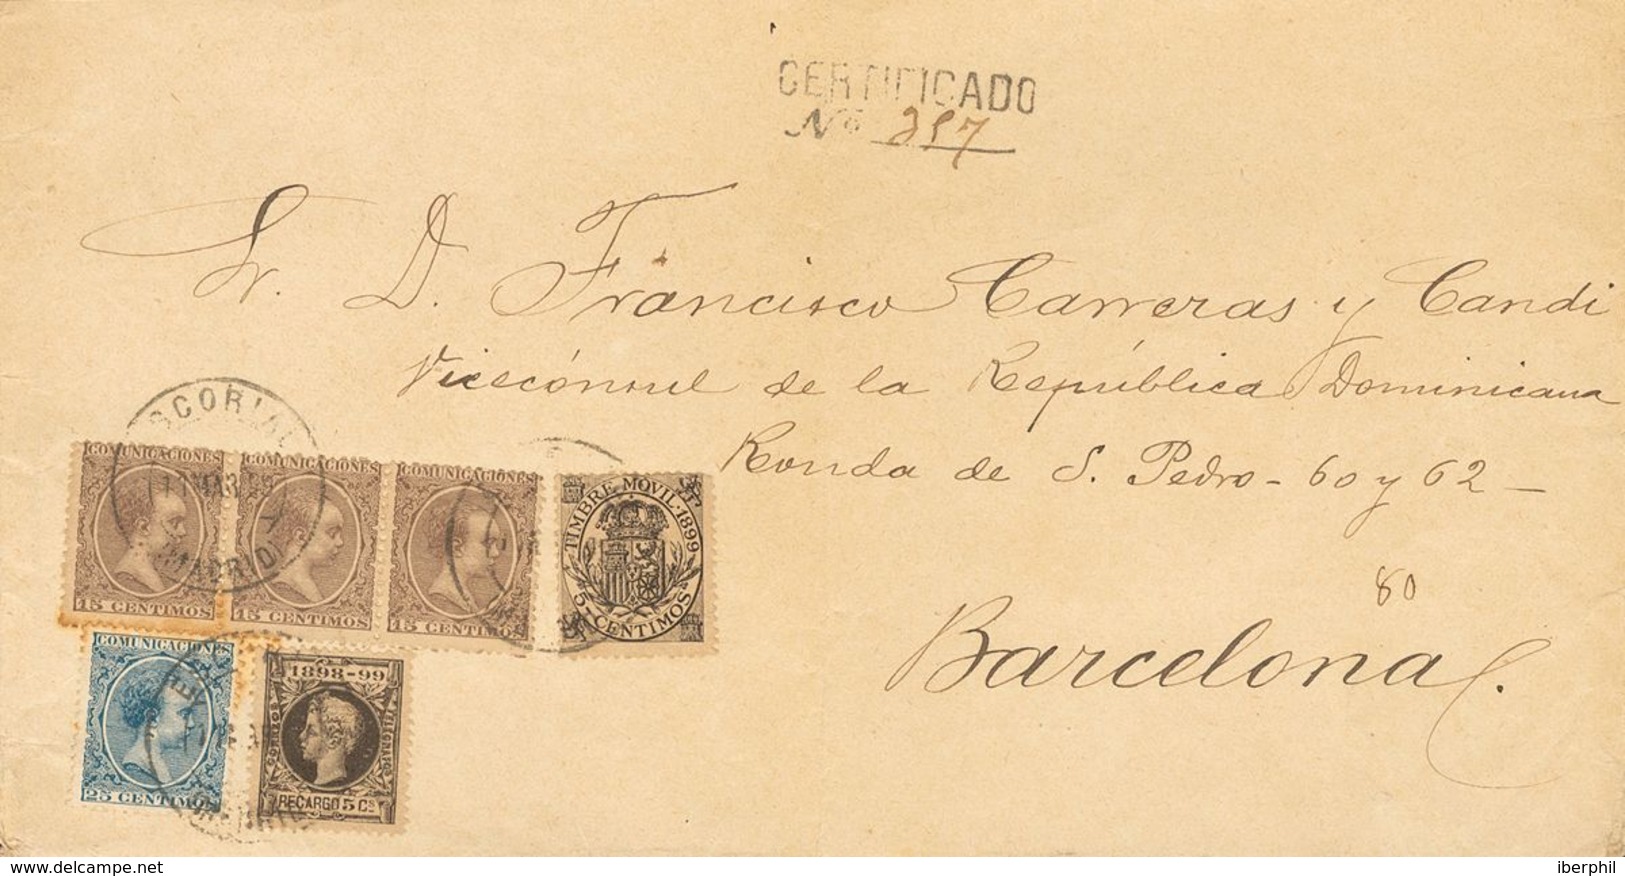 CERTIFICADO
Nº 397
Sr. D. Francisco Carreras y Candi
Vicecónsul de la República Dominicana
Ronda de S. Pedro - 60 y 62 -
80
Barcelona
ESCORIAL
MADRID
COMUNICACIONES
15 CENTIMOS
COMUNICACIONES
15 CENTIMOS
COMUNICACIONES
15 CENTIMOS
TIMBRE MOVIL·1899
5 CENTIMOS
COMUNICACIONES
25 CENTIMOS
1898-99
CORREOS
RECARGO 5 Cs
www.delcampe.net
iberphil